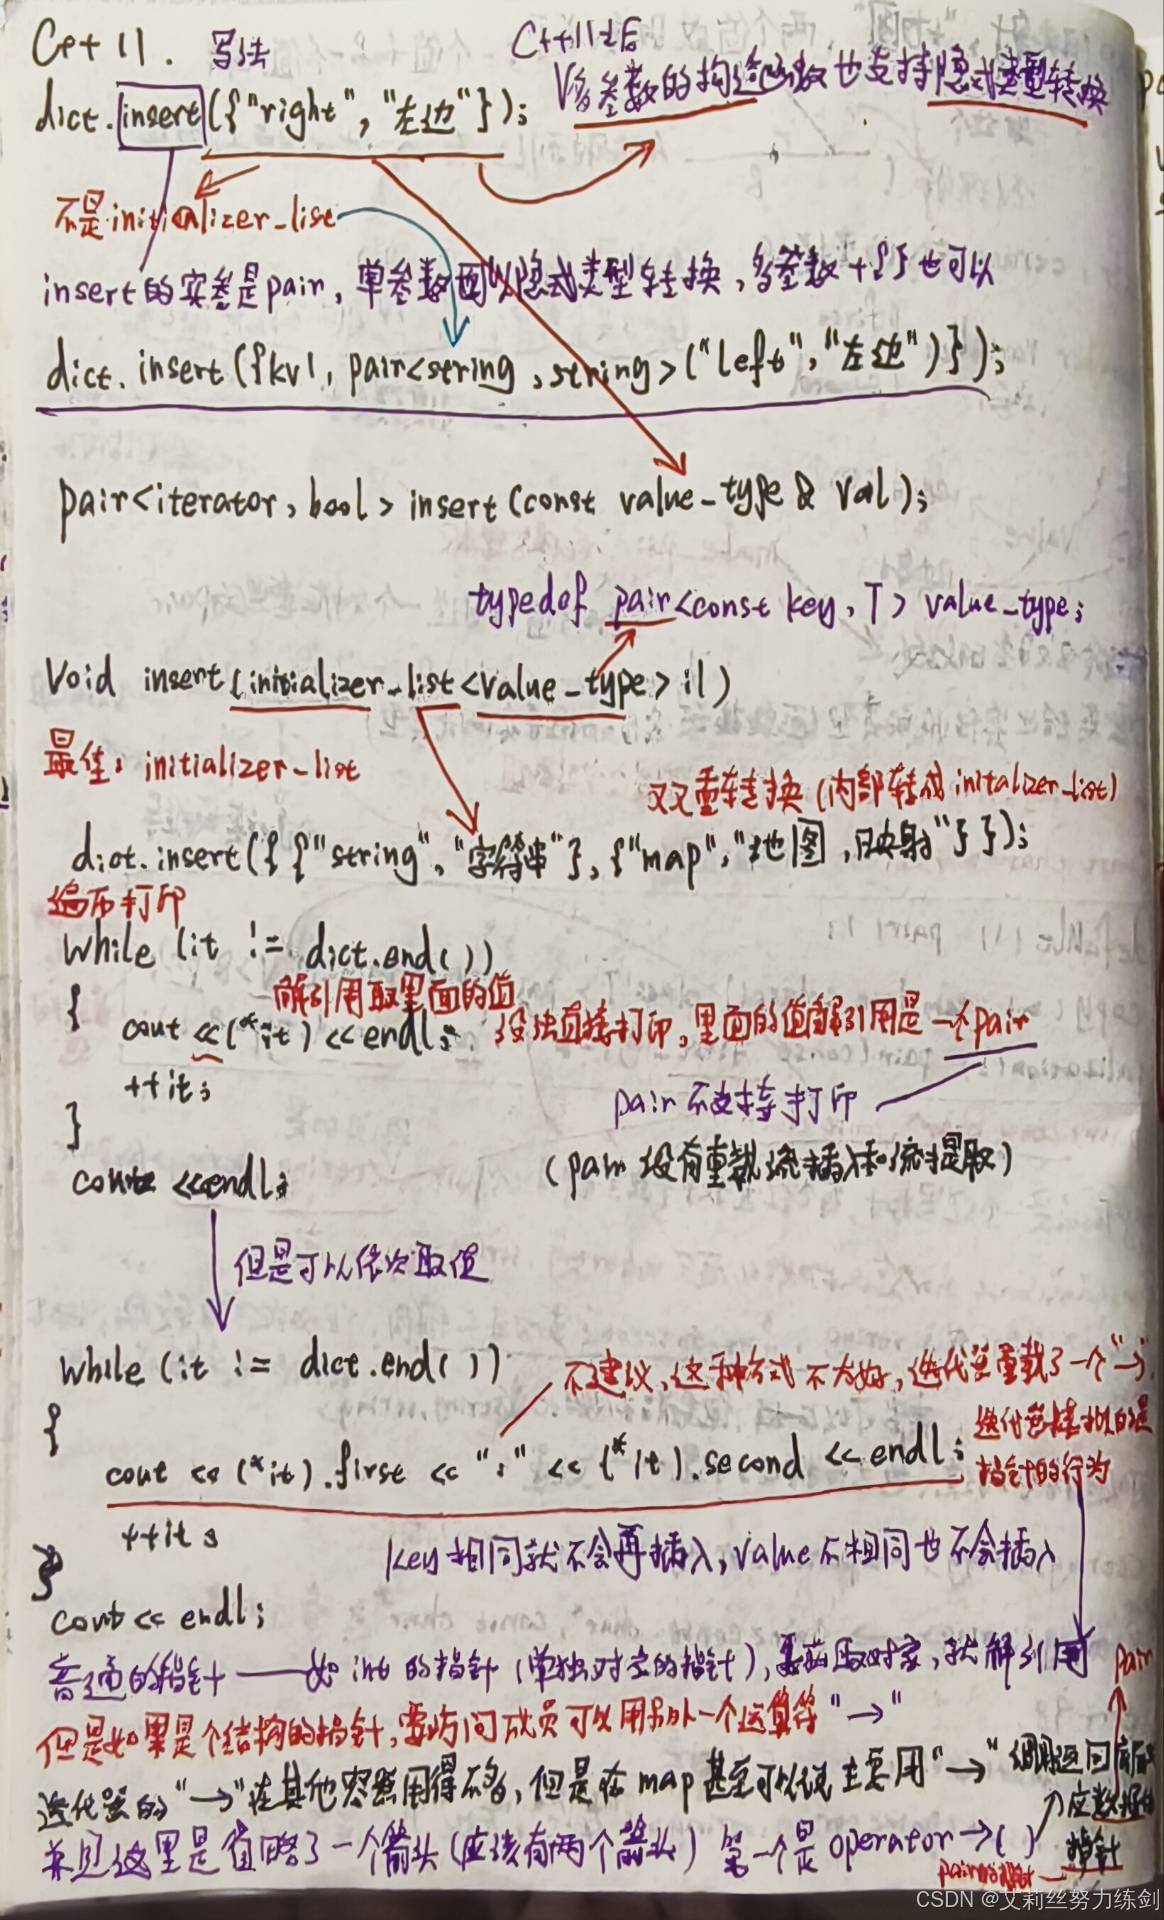 C++11. 写法
C++11之后
dict.insert({"right","左边"});
多参数的构造函数也支持隐式类型转换
不是initializer_list
insert的实参是pair,单参数可以隐式类型转换,多参数+{}也可以
dict.insert({kv1, pair<string,string>("left","左边")});
pair<iterator, bool> insert(const value_type & val);
typedef pair<const key, T> value_type;
void insert(initializer_list<value_type> il)
最佳: initializer_list
双重转换(内部转成initalizer_list)
dict.insert({{"string","字符串"},{"map","地图,映射"}});
遍历打印
while (it != dict.end())
{
解引用取里面的值
cout <<(*it) <<endl; 没法直接打印,里面的值解引用是一个pair
++it;
pair不支持打印
}
(pair没有重载流插入和流提取)
cout <<endl;
但是可以依次取值
while (it != dict.end())
不建议,这种方式不太好,迭代器重载了一个"→"
{
迭代器模拟的是
指针的行为
cout << (*it).first << ":" << (*it).second << endl;
++it;
key相同就不会再插入,value不相同也不会插入
}
cout << endl;
普通的指针——如int的指针(单独对应的指针),要获取对象,就解引用
pair
但是如果是个结构的指针,要访问成员可以用另外一个运算符"→"
迭代器的"→"在其他容器用得不多,但是在map甚至可以说主要用"→"
返回
应数据的
指针
并且这里是省略了一个箭头(应该有两个箭头) 第一个是operator→()
pair的指针
CSDN @艾莉丝努力练剑